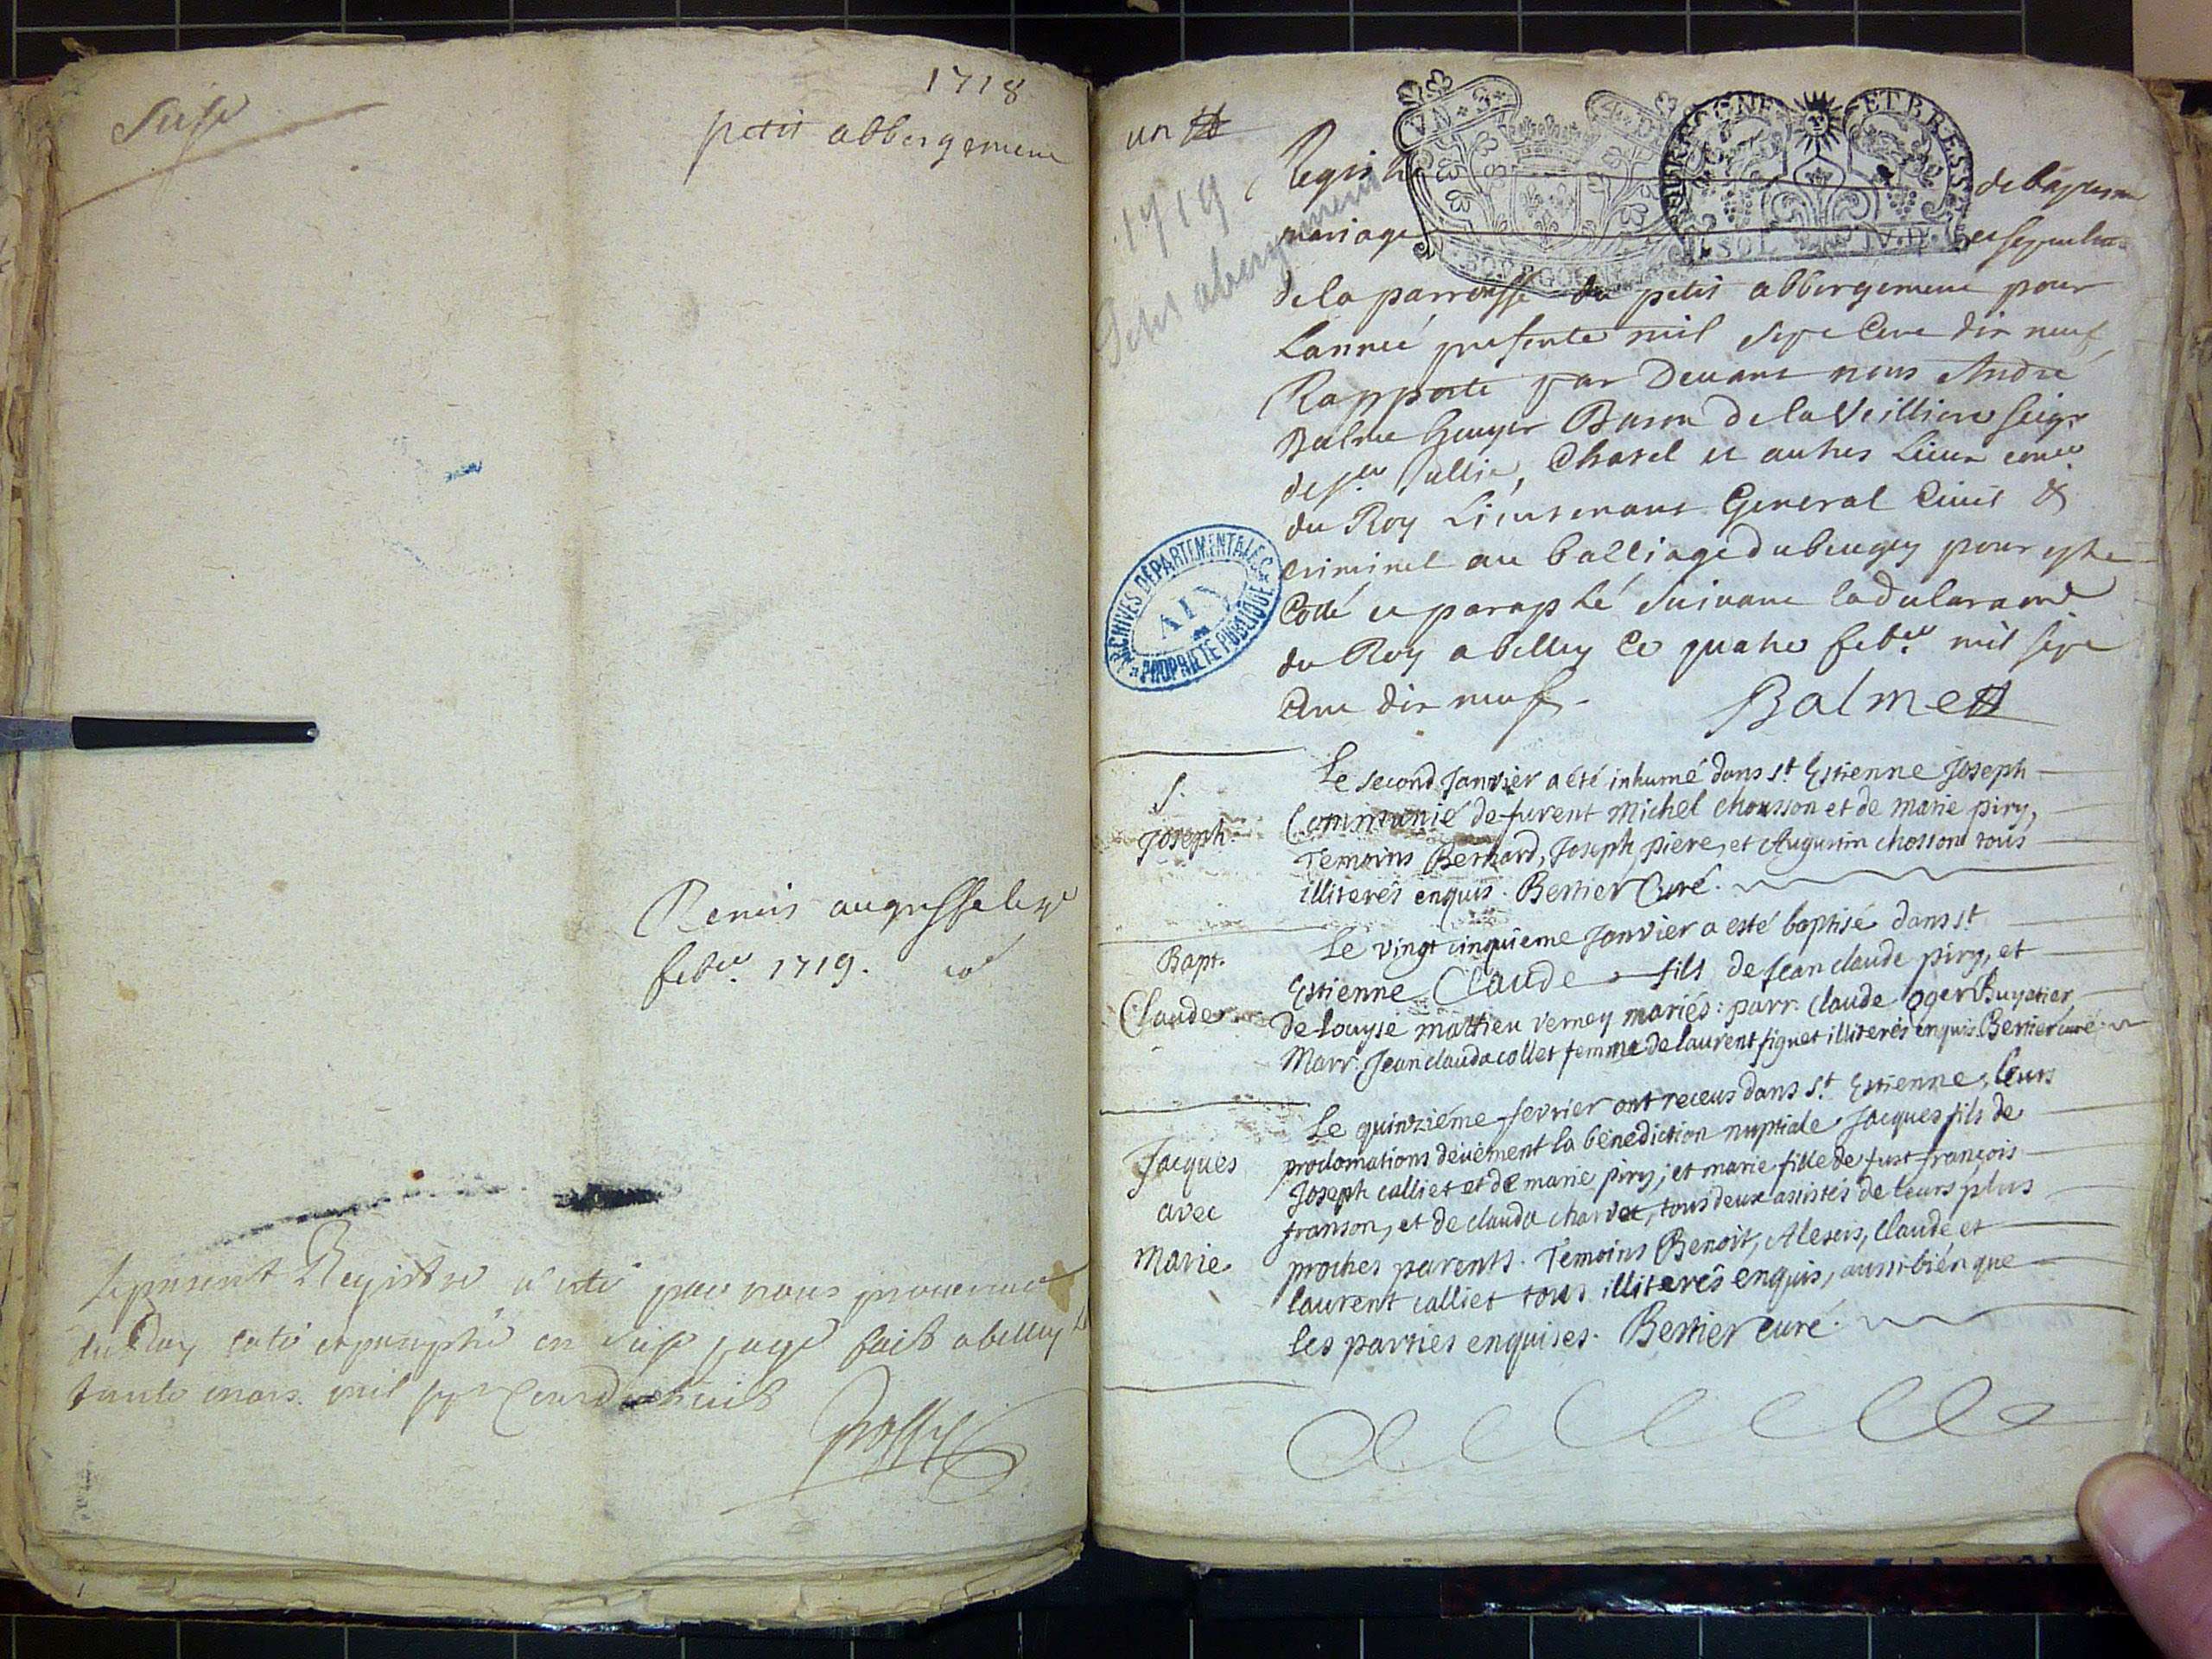 1718
petit abbergement
Remis au greffe le
feb.er 1719.
Le present Registre a esté par nous procureur
du Roy coté et paraphé en seise page fait a belley
trente mars mil sept cent dixhuit
un
1719
Petit abergement
Registre de baptesme
mariage et sepulture
de la parroisse du petit abbergement pour
Lanneé presente mil sept cent dix neuf,
Rapporté par Devant nous André
Balme Baron De la Veilliere seigr
Chatel et autres Lieux
du Roy Lieutenant General Civil &
criminel au balliage du beugey pour estre
Cotté et paraphé suivant la
du Roy a belley ce quatre feb.er mil sept
cent dix neuf.
Balme
ARCHIVES DÉPARTEMENTALES
AIN
PROPRIÉTÉ PUBLIQUE
BOURGOGNE ET BRESSE
S.
Joseph.
Le second Janvier a été inhumé dans st Estienne Joseph
Communié de furent Michel chousson et de marie piry,
Temoins Bernard, Joseph, piere, et Augustin chosson tous
illiterés enquis. Bertier Curé.
Bapt.
Claude
Le vingt cinquieme Janvier a esté baptisé dans st
Estienne Claude fils de Jean claude piry, et
de Louyse mathieu verney mariés: parr. claude oger Buyatier
Marr. Jeanclauda collet femme de laurent figuet illiterés enquis. Bertier curé.
Jacques
avec
Marie
Le quinziéme fevrier ont receus dans st Estienne, leurs
proclamations deüement la benediction nuptiale Jacques fils de
Joseph calliet et de marie piry; et marie fille de fust françois
franson, et de clauda charvet, tous deux assistés de leurs plus
proches parents. Temoins Benoit, Alexis, Claude et
laurent calliet tous illiterés enquis, aussi bién que
les parties enquises. Bertier curé.